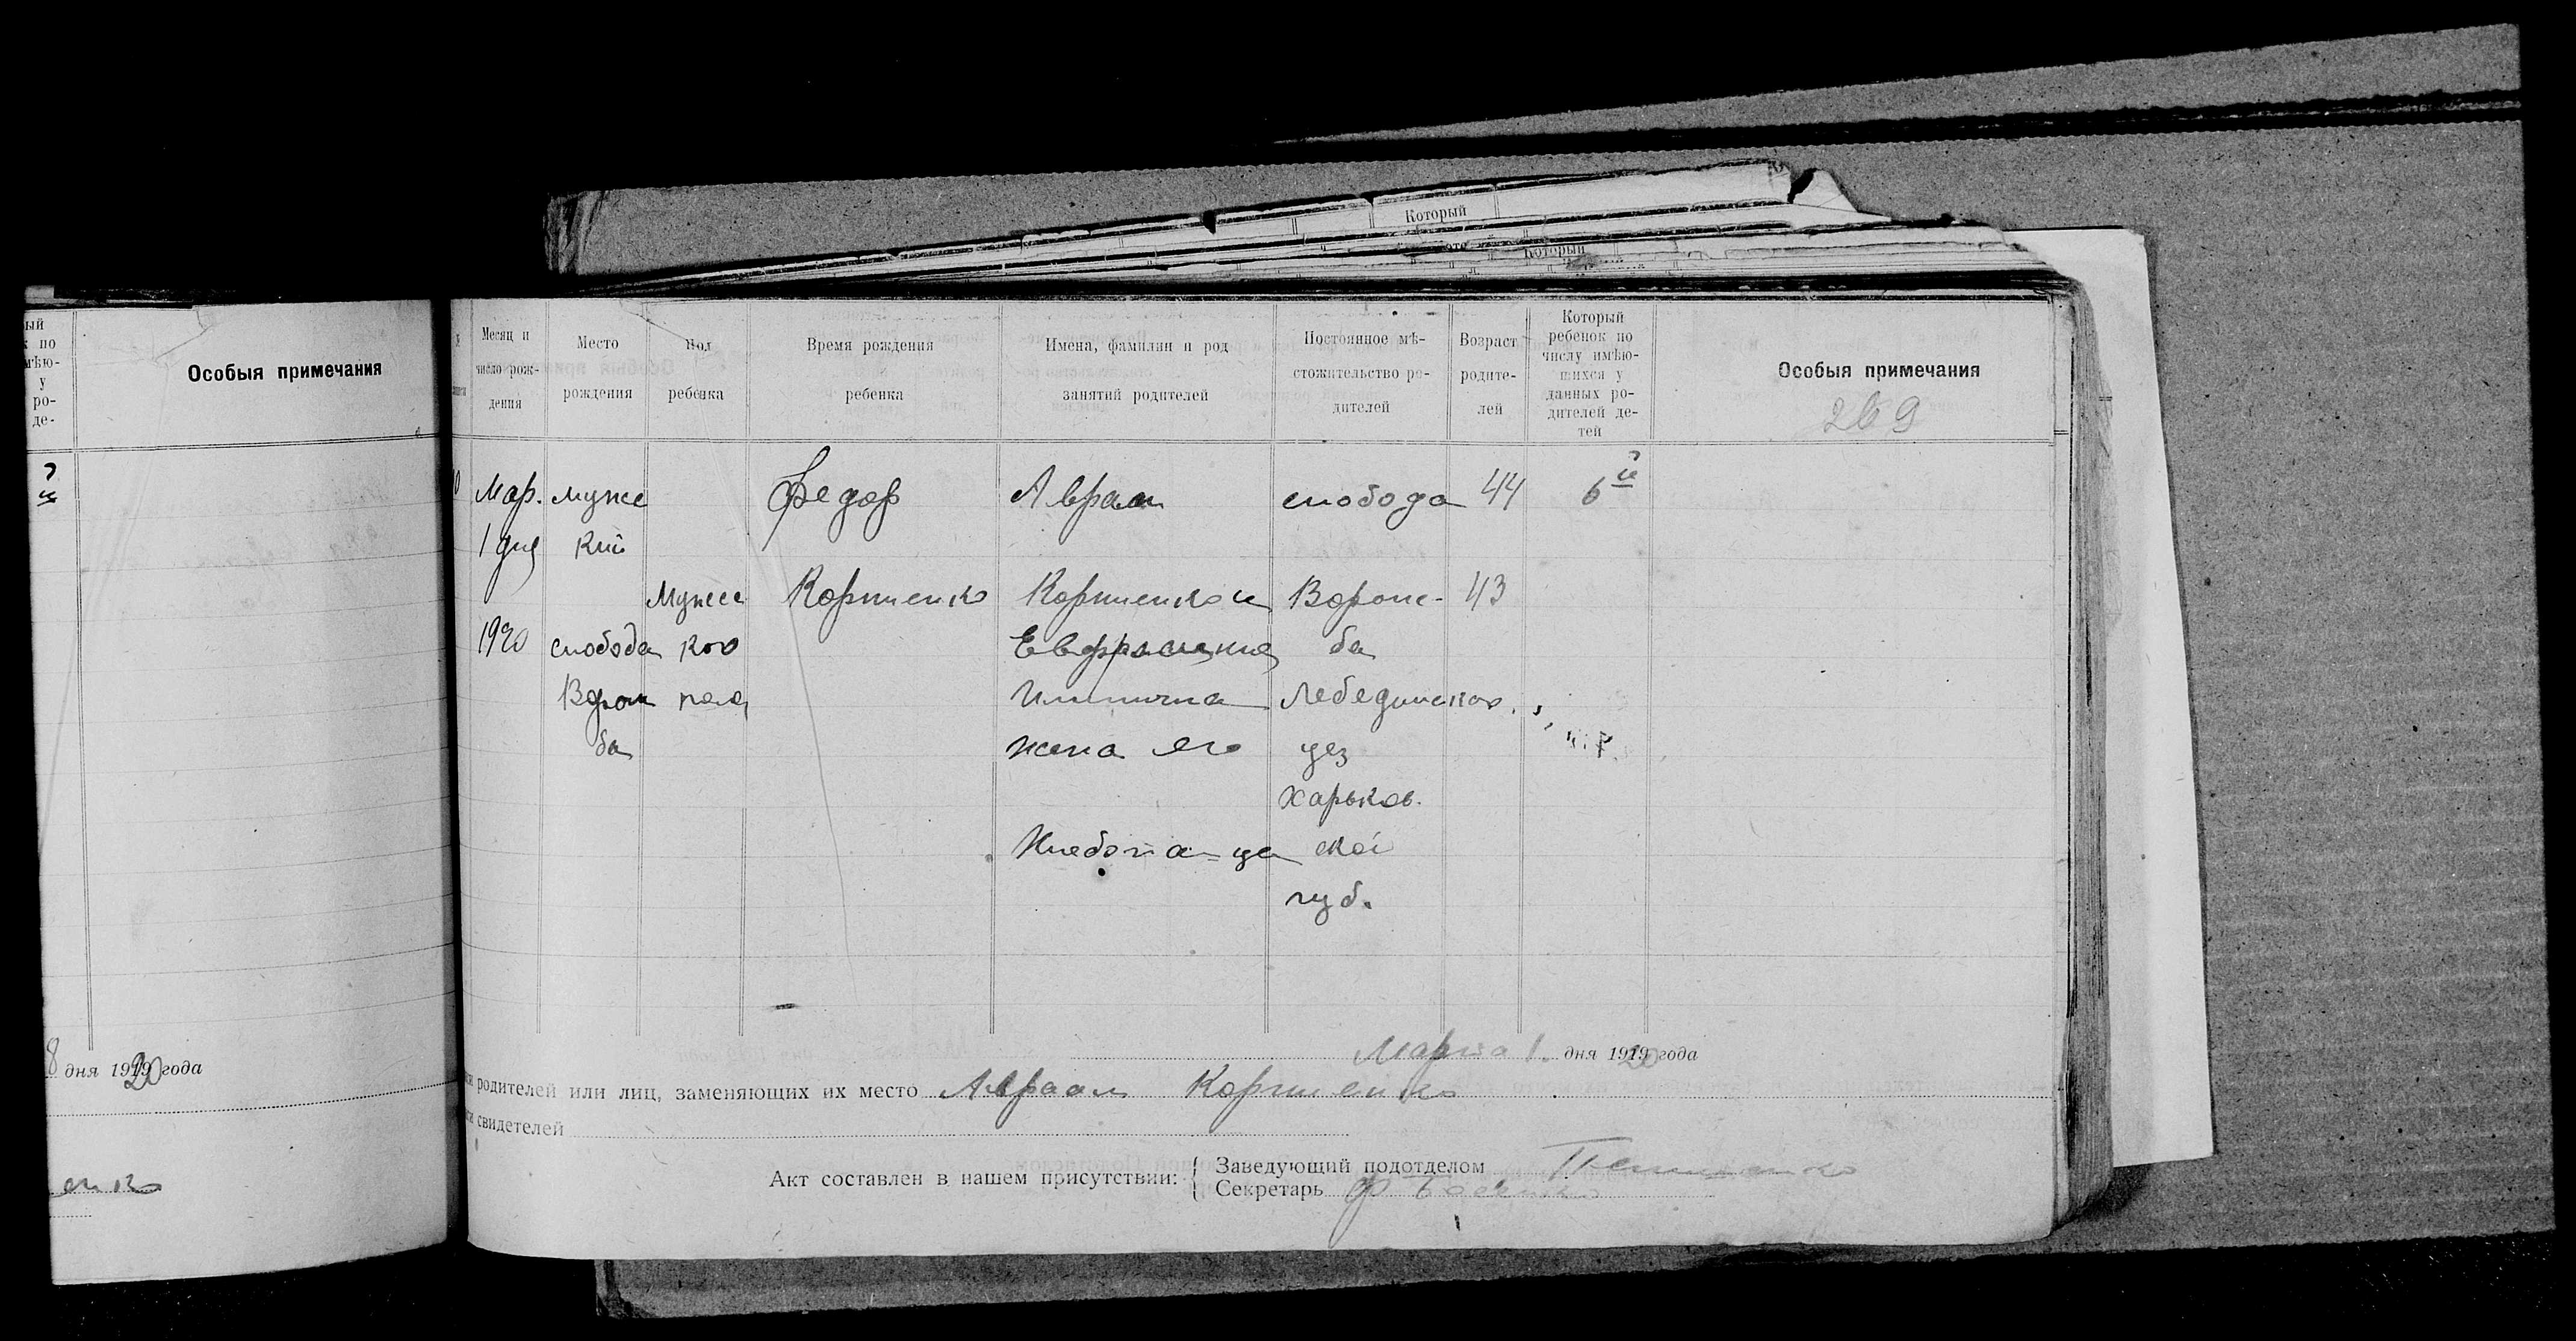 Который
Который
ый
к по
мѣю-
у
ро-
де-
Особыя примечания
й
8 дня 1920 года
енко
Месяц и
число рож-
дения
Место
рождения
Пол
ребенка
Время рождения
ребенка
Имена, фамилии и род
занятий родителей
Постоянное мѣ-
стожительство ро-
дителей
Возраст
родите-
лей
Который
ребенок по
числу имѣю-
шихся у
данных ро-
дителей де-
тей
Особыя примечания
269
Мар.
1 дня
1920
муже
кий
слобода
Ворож
ба
Мужес
кого
пола
Федор
Авраам
Евфросиния
жена его
слобода
Ворож-
ба
Лебединского
уез
Харьков.
ской
губ.
44
43
6й
Марта 1. дня 1920 года
родителей или лиц, заменяющих их место Авраам
свидетелей
Акт составлен в нашем присутствии:
Заведующий подотделом
Секретарь